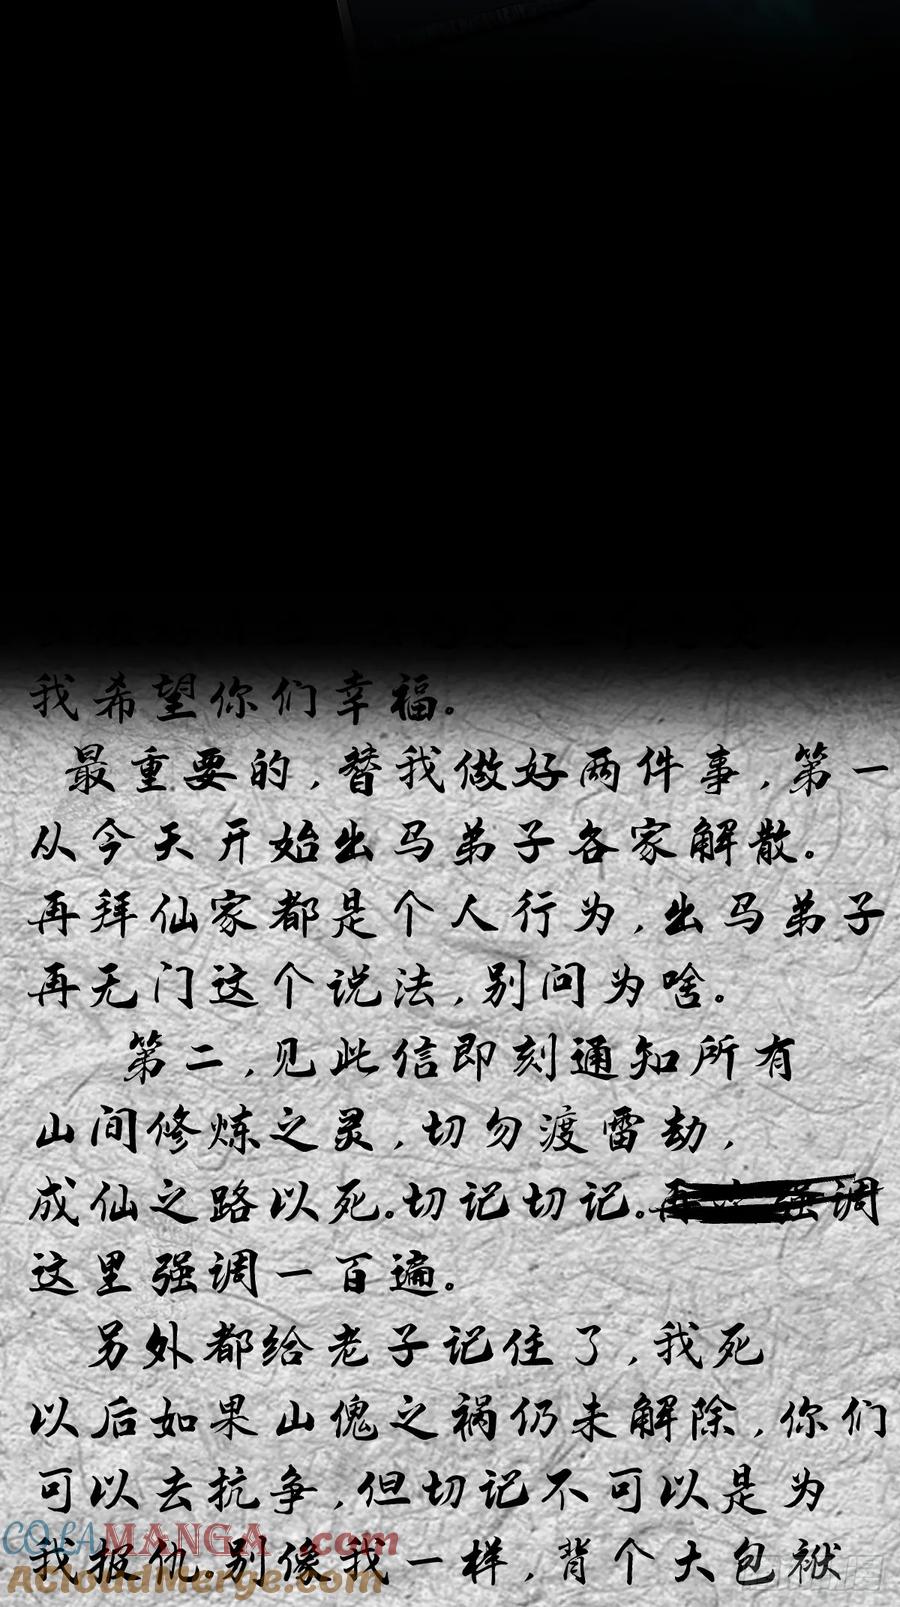 我希望你们幸福。
最重要的,替我做好两件事,第一
从今天开始出马弟子各家解散。
再拜仙家都是个人行为,出马弟子
再无门这个说法,别问为啥。
第二,见此信即刻通知所有
山间修炼之灵,切勿渡雷劫,
成仙之路以死。切记切记。再次强调
这里强调一百遍。
另外都给老子记住了,我死
以后如果山傀之祸仍未解除,你们
可以去抗争,但切记不可以是为
我报仇.别像我一样,背个大包袱
COLAMANGA.com
AcloudMerge.com